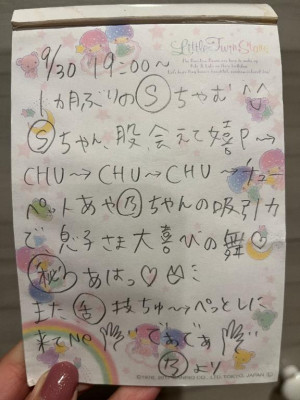 Little Twin Stars
9/30 19:00〜
1ヵ月ぶりのⓈちゃむ^^
Ⓢちゃん、股、会えて嬉P〜→
CHU〜→CHU〜→CHU〜→チュー
ペットあや乃ちゃんの吸引力
で息子さま大喜びの舞♡
㊙あはっ♡
また舌技ちゅ〜→ぺっとしに
来てNe であであ
乃より